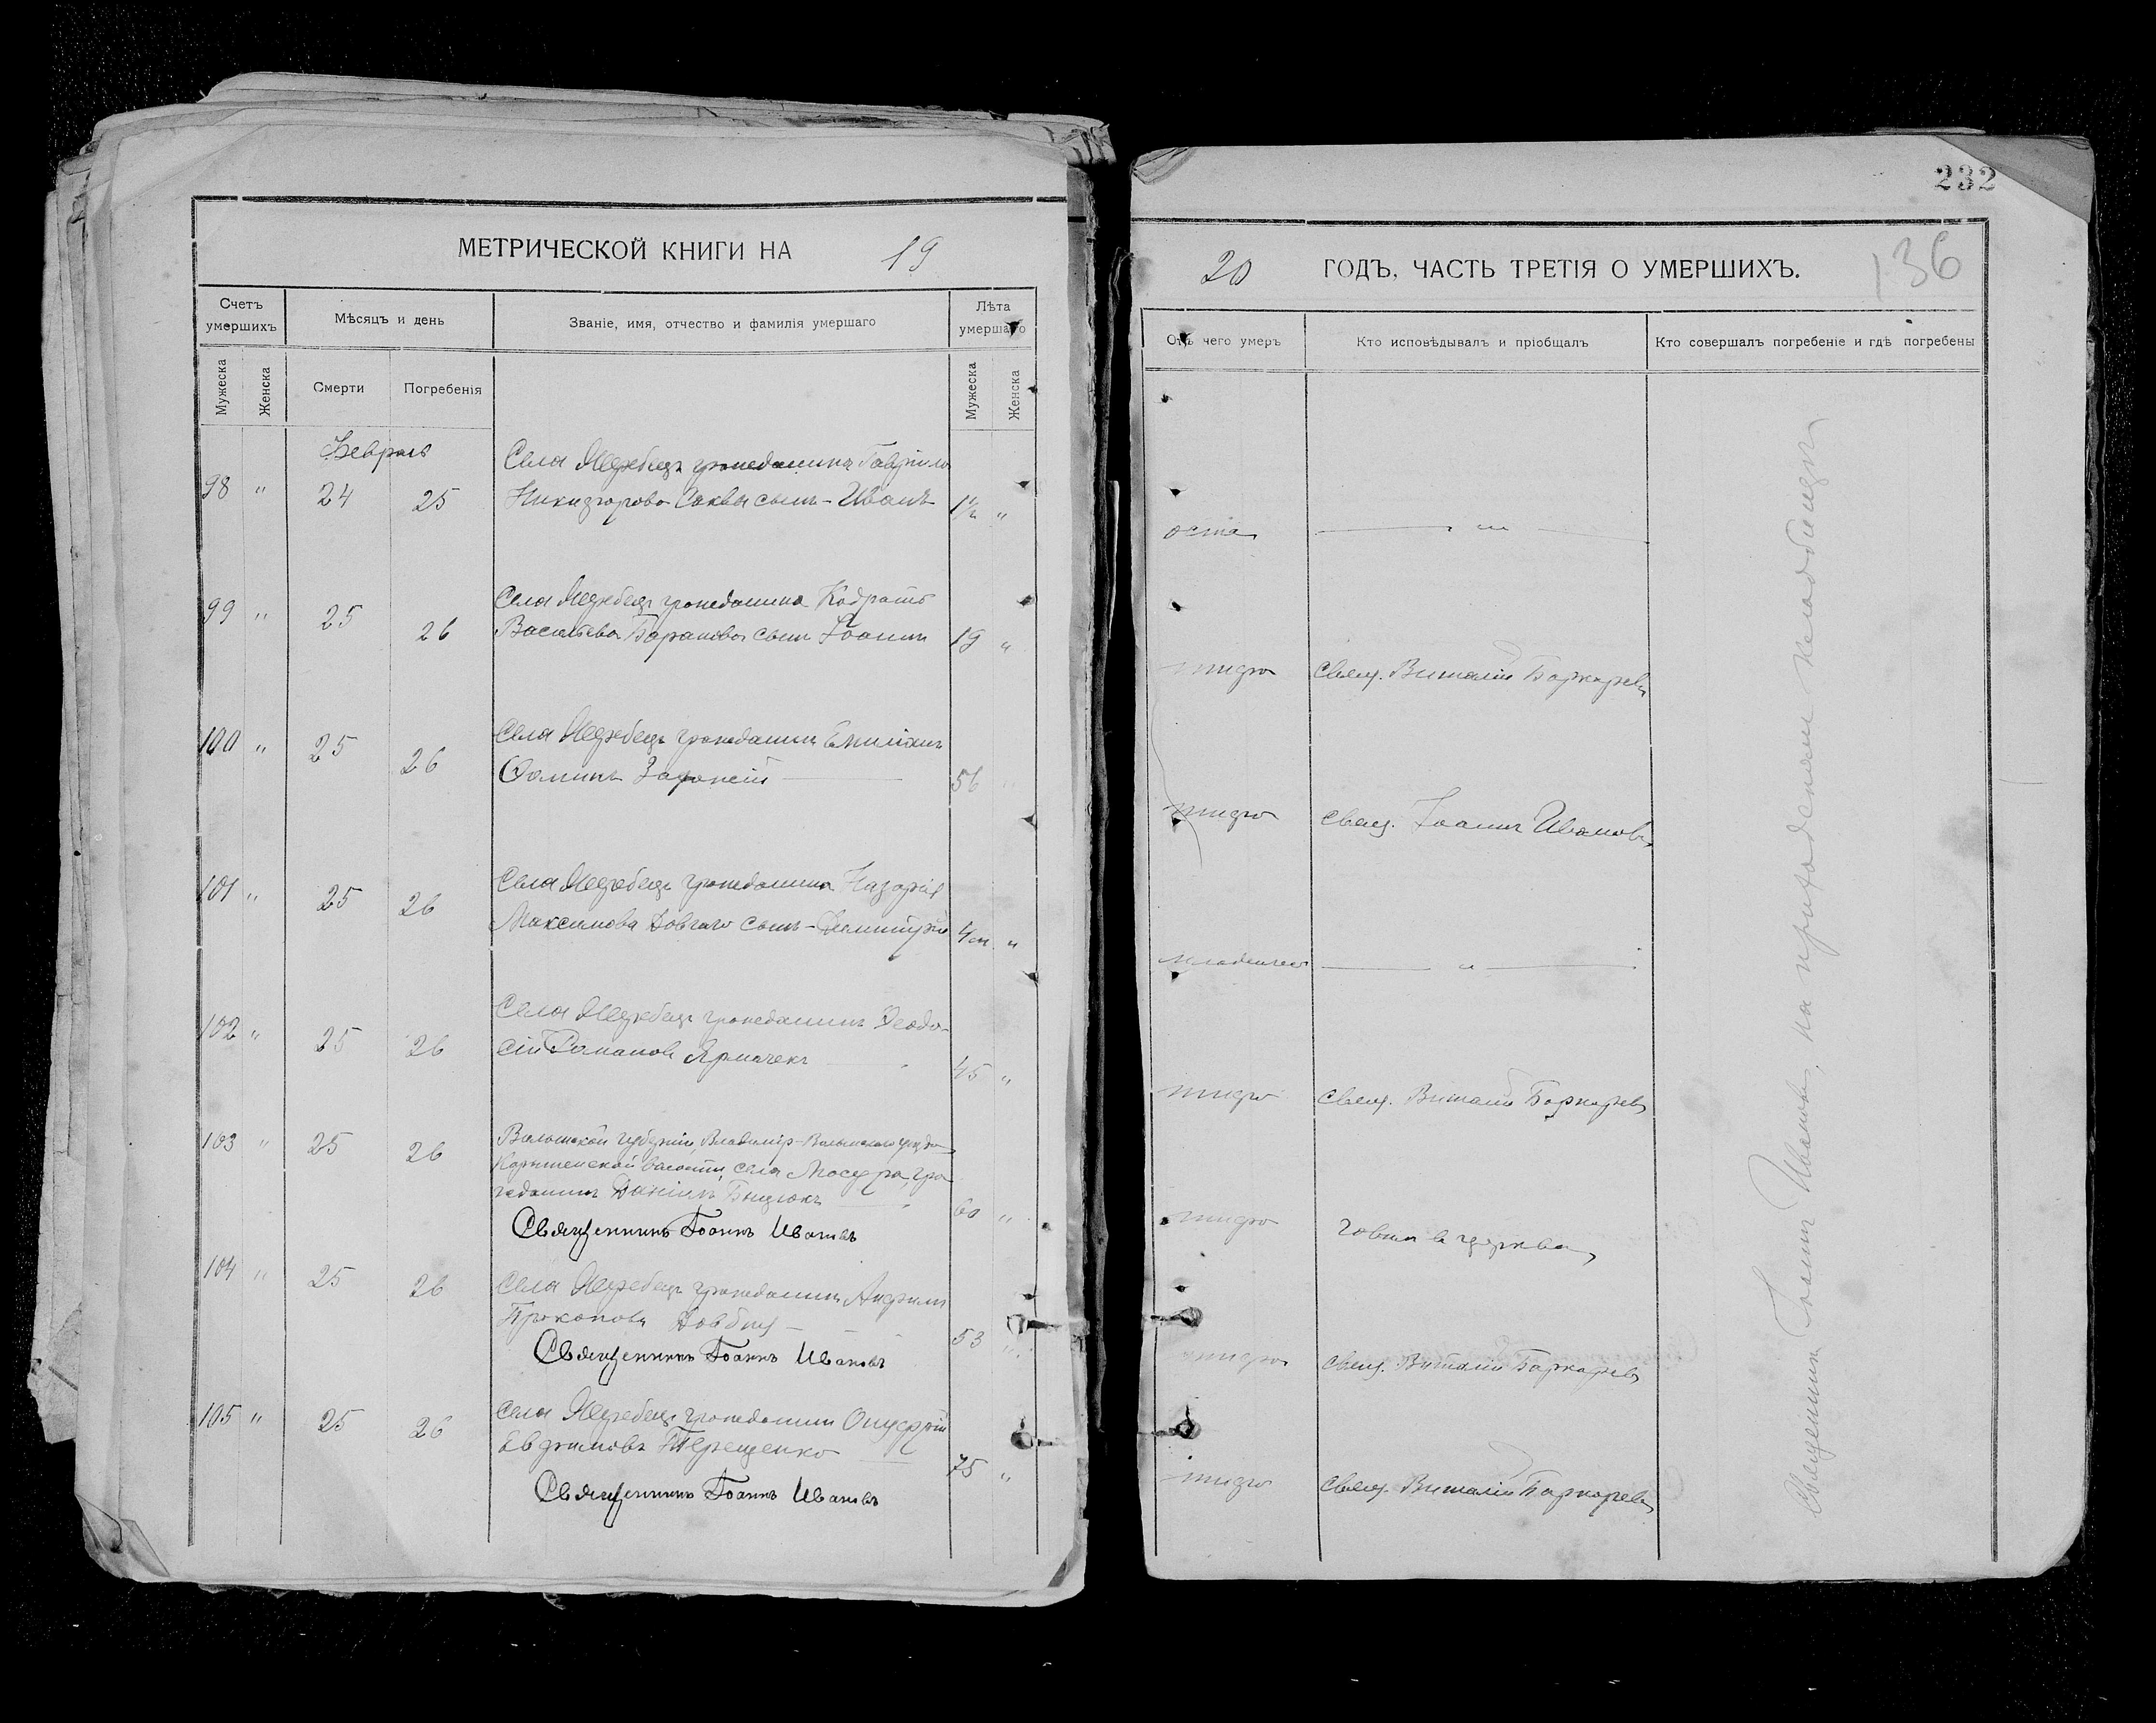 232
136
МЕТРИЧЕСКОЙ КНИГИ НА 19
20 ГОДЪ, ЧАСТЬ ТРЕТІЯ О УМЕРШИХЪ.
Счетъ умершихъ
Мѣсяцъ и день
Званіе, имя, отчество и фамилія умершаго
Лѣта умершаго
Мужеска
Женска
Смерти
Погребенія
Мужеска
Женска
Отъ чего умеръ
Кто исповѣдывалъ и пріобщалъ
Кто совершалъ погребеніе и гдѣ погребены
Февраль
98 " 24 25
Села гражданина Гавріила
сынъ - Иванъ
1½ "
оспа
99 " 25 26
Села гражданина
Васильева Баранова сынъ Іоаннъ
19 "
тифъ
Свящ. Виталій
100 " 25 26
Села гражданинъ
Ѳоминъ
56
тифъ
Свящ. Іоаннъ Ивановъ
101 " 25 26
Села гражданина Назарія
Максимова Довгаго сынъ - Димитрій
4 м. "
102 " 25 26
Села гражданинъ Ѳеодо-
сій Романовъ Ярмачекъ
45 "
тифъ
Свящ. Виталій
103 " 25 26
Волынской губерніи, Владимір-Волынского уезда
волости, села Мосура, гра
жданинъ Даніилъ
60 "
Священникъ Іоаннъ Ивановъ
тифъ
104 " 25 26
Села гражданинъ
Прокоповъ Довбня
53 "
Священникъ Іоаннъ Ивановъ
тифъ
Свящ. Виталій
105 " 25 26
Села гражданинъ Онуфрій
Евфимовъ Терещенко
75 "
Священникъ Іоаннъ Ивановъ
тифъ
Свящ. Виталій
Священникъ Іоаннъ Ивановъ, на приходскомъ кладбищѣ